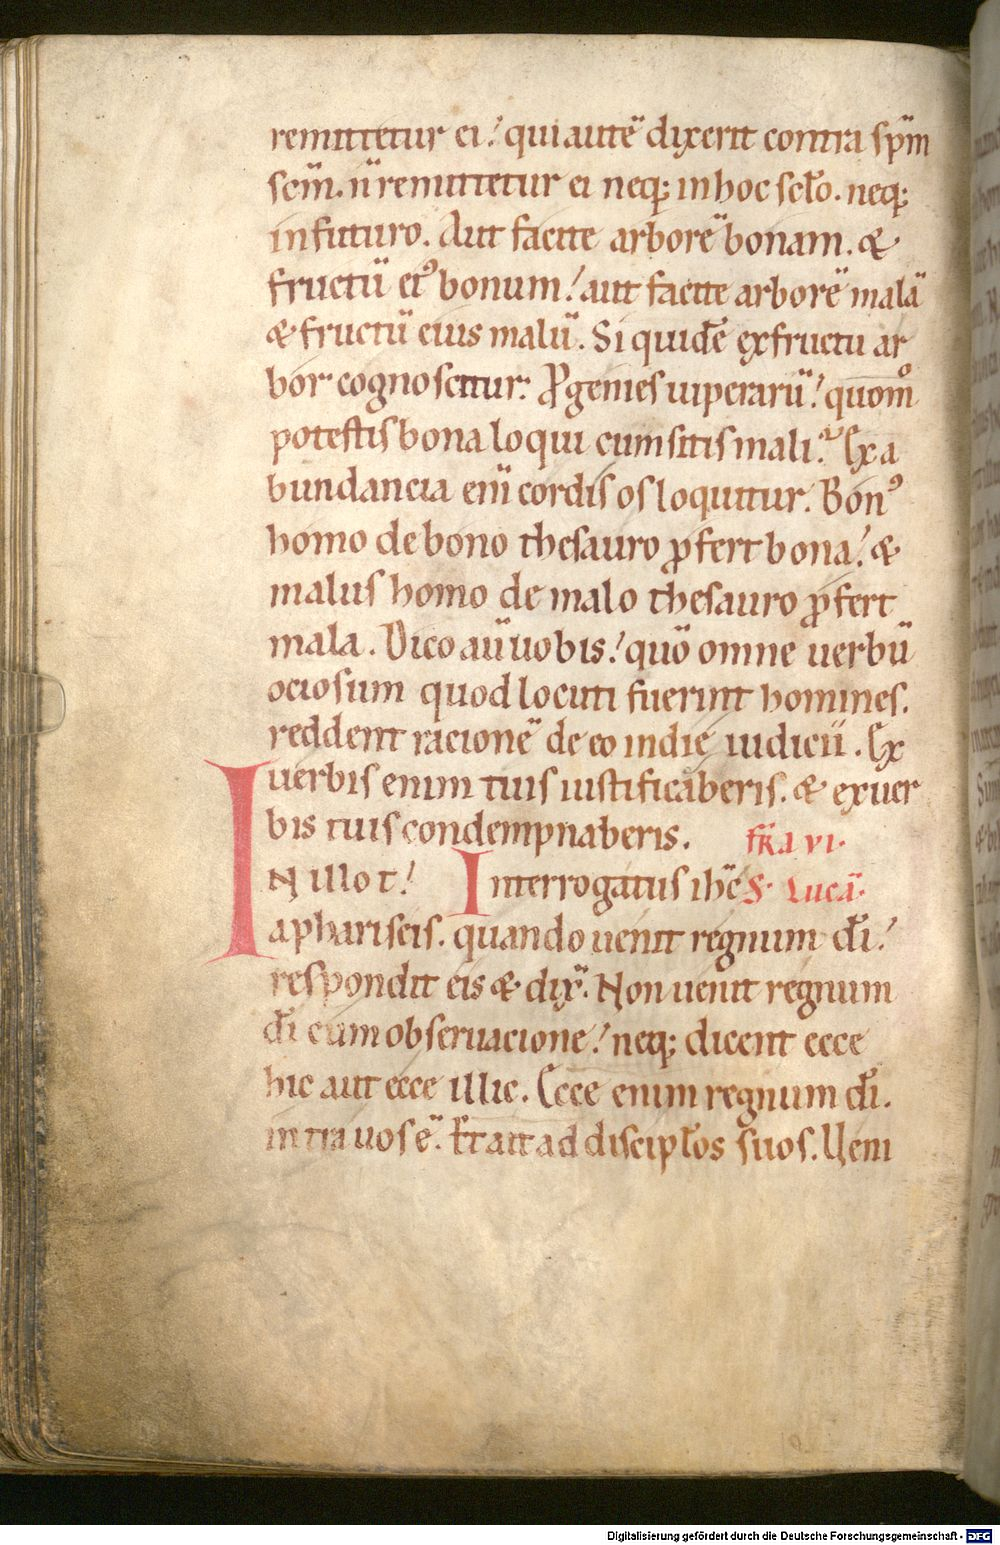 remittetur ei! qui autē dixerit contra sp̄m
sc̄m. n̄ remittetur ei neq; in hoc sclo. neq;
in futuro. Aut facite arborē bonam. &
fructū ei⁹ bonum! aut facite arborē malā
& fructū eius malū. Si quidē ex fructu ar
bor cognoscitur. Progenies uiperarū! quom̊
potestis bona loqui cum sitis mali? Ex a
bundancia eni̅ cordis os loquitur. Bon⁹
homo de bono thesauro ꝓfert bona! &
malus homo de malo thesauro ꝓfert
mala. Dico aū uobis! quō omne uerbū
ociosum quod locuti fuerint homines.
reddent racionē de eo in die iudicii. Ex
uerbis enim tuis iustificaberis. & ex uer
bis tuis condempnaberis. fr̄a vi.
IN illo t! Interrogatus ih̄c S. Lucā.
a phariseis. quando uenit regnum dī!
respondit eis & dix̄. Non uenit regnum
dī cum obseruacione! neq; dicent ecce
hic aut ecce illic. Ecce enim regnum dī.
intra uos ē. Et ait ad discipl̄os suos. Ueni
Digitalisierung gefördert durch die Deutsche Forschungsgemeinschaft - DFG